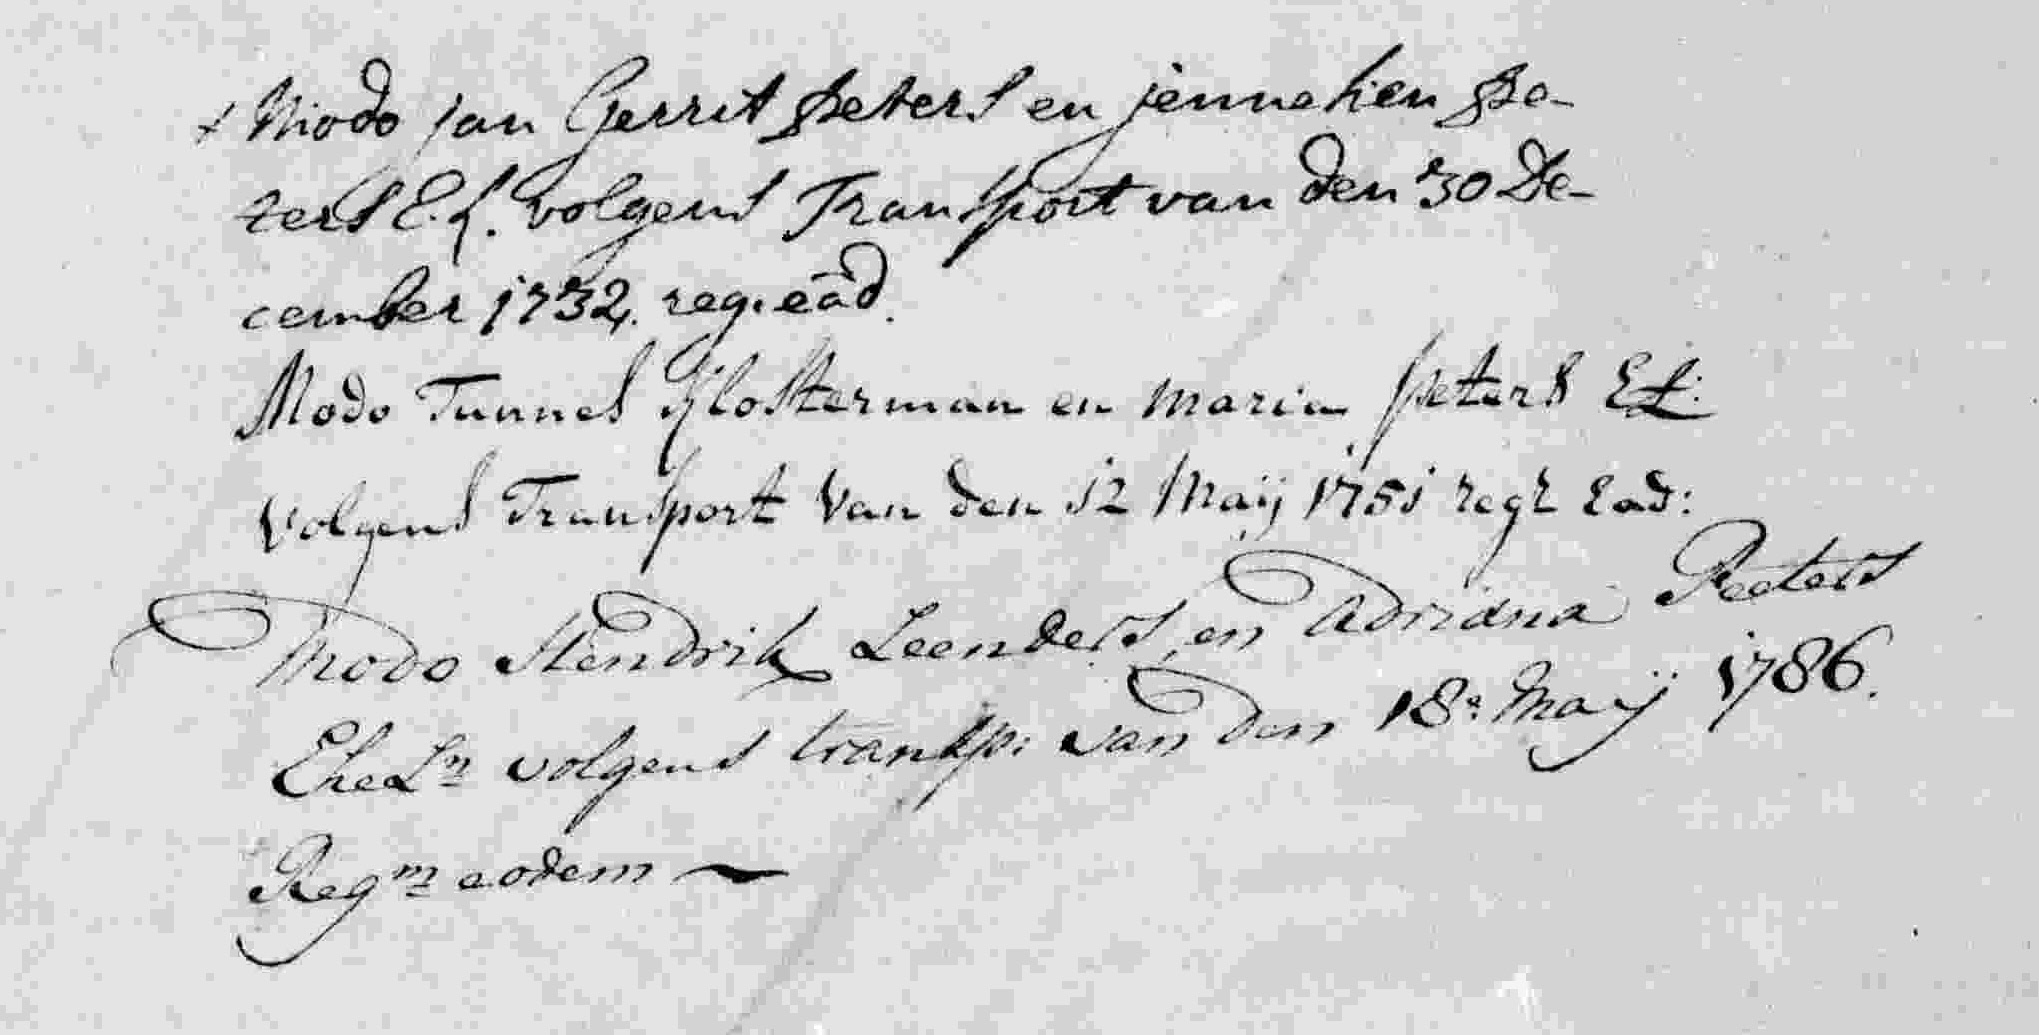 + Modo Jan Gerrit Peters en jenneken Pe-
ters E.L. volgens Transport van den 30 De-
cember 1732. reg. eãd.
Modo Tunnes Klosterman en maria peters EL:
volgens Transport Van den 12 Maij 1751 regr Ead:
Modo Hendrik Leenders, en Adriana Peeters
EheLn volgens transp: van den 18e Maij 1786.
Regm eodem ~